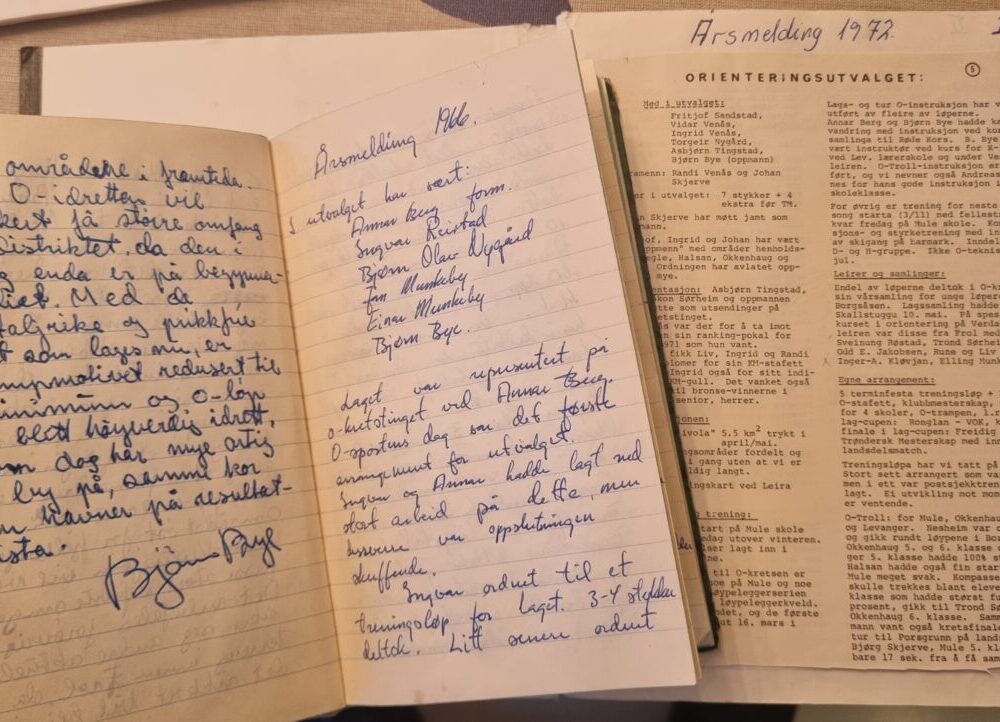 områdene i framtida.
O-idretten vil
få større omfang
distriktet, da den i
enda er på begynner-
Med de
og prikkfrie
som lages nu, er
redusert til
minimum og O-løp
blitt høyverdig idrett,
dag har mye artig
by på, samme kor
havner på resultat-
Bjørn Bye
Årsmelding 1966.
I utvalget har vært:
Annar Berg form.
Ingvar Reistad
Bjørn Olav Nygård
Jon Munkeby
Einar Munkeby
Bjørn Bye.
Laget var representert på
o-kretstinget ved Annar Berg.
O-sportens dag var det første
arrangement for utvalget.
Ingvar og Annar hadde lagt ned
stort arbeid på dette, men
dessverre var oppslutningen
skuffende.
Ingvar ordnet til et
treningsløp for laget. 3-4 stykker
deltok. Litt senere ordnet
Årsmelding 1972.
ORIENTERINGSUTVALGET:
5
Med i utvalget:
Fritjof Sandstad,
Vidar Venås,
Ingrid Venås,
Torgeir Nygård,
Asbjørn Tingstad,
Bjørn Bye (oppmann)
Randi Venås og Johan
Skjerve
i utvalget: 7 stykker +
ekstra før TM.
Skjerve har møtt jamt som
Ingrid og Johan har vært
oppmenn" med områder henholds-
Halsan, Okkenhaug og
Ordningen har avlatet opp-
Asbjørn Tingstad,
Sørheim og oppmannen
som utsendinger på
var der for å ta imot
sin ranking-pokal for
1971 som hun vant.
fikk Liv, Ingrid og Randi
for sin KM-stafett
Ingrid også for sitt indi-
KM-gull. Det vanket også
bronse-vinnerne i
senior, herrer.
5.5 km² trykt i
april/mai.
fordelt og
i gang uten at vi er
langt.
ved Leira
trening:
på Mule skole
utover vinteren.
lagt inn i
til O-kretsen er
på Mule og noe
løypeleggerserien
løypeleggerkveld.
og de første
16. mars i
Lags- og tur O-instruksjon har v
utført av fleire av løperne.
Annar Berg og Bjørn Bye hadde k
vandring med instruksjon ved ko
samlinga til Røde Kors. B. Bye
vært instruktør ved kurs for X-
ved Lev. lærerskole og under Ve
leiren. O-Troll-instruksjon er
ført, og vi nevner også Andreas
nes for hans gode instruksjon i
skoleklasse.
For øvrig er trening for neste
song starta (3/11) med fellest
kvar fredag på Mule skole. Kon
sjons- og styrketrening med in
av skigang på harmark. Inndel
D- og H-gruppe. Ikke O-teknis
jul.
Leirer og samlinger:
Endel av løperne deltok i O-kr
sin vårsamling for unge løpere
Borgsåsen. Lagssamling hadde
Skallstuggu 10. mai. På spes
kurset i orientering på Verda
leiren var disse fra Frol med
Sveinung Røstad, Trond Sørhei
Odd E. Jakobsen, Rune og Liv
Inger-A. Kløvjan, Elling Munk
Egne arrangement:
5 terminfesta treningsløp +
O-stafett, klubbmesterskap,
for 4 skoler, O-trampen, l.r
lag-cupen: Ronglan - VOK, k
finale i lag-cupen: Freidig
Trøndersk Mesterskap med inn
landsdelsmatch.
Treningsløpa har vi tatt på
Stort sett arrangert som var
men i ett var postsjekktren
lagt. Ei utvikling mot mom
er ventende.
O-Troll: for Mule, Okkenhau
og Levanger. Nesheim var o
og gikk rundt løypene i Bor
Okkenhaug 5. og 6. klasse
ger 5. klasse hadde 100% st
Halsan hadde også fin start
Mule meget svak. Kompasse
skulle trekkes blant eleve
klasse som hadde størst fu
prosent, gikk til Trond Sø
Okkenhaug 6. klasse. Samm
mann vant også kretsfinale
tur til Porsgrunn på lands
Bjørg Skjerve, Mule 5. kl
bare 17 sek. fra å få sam